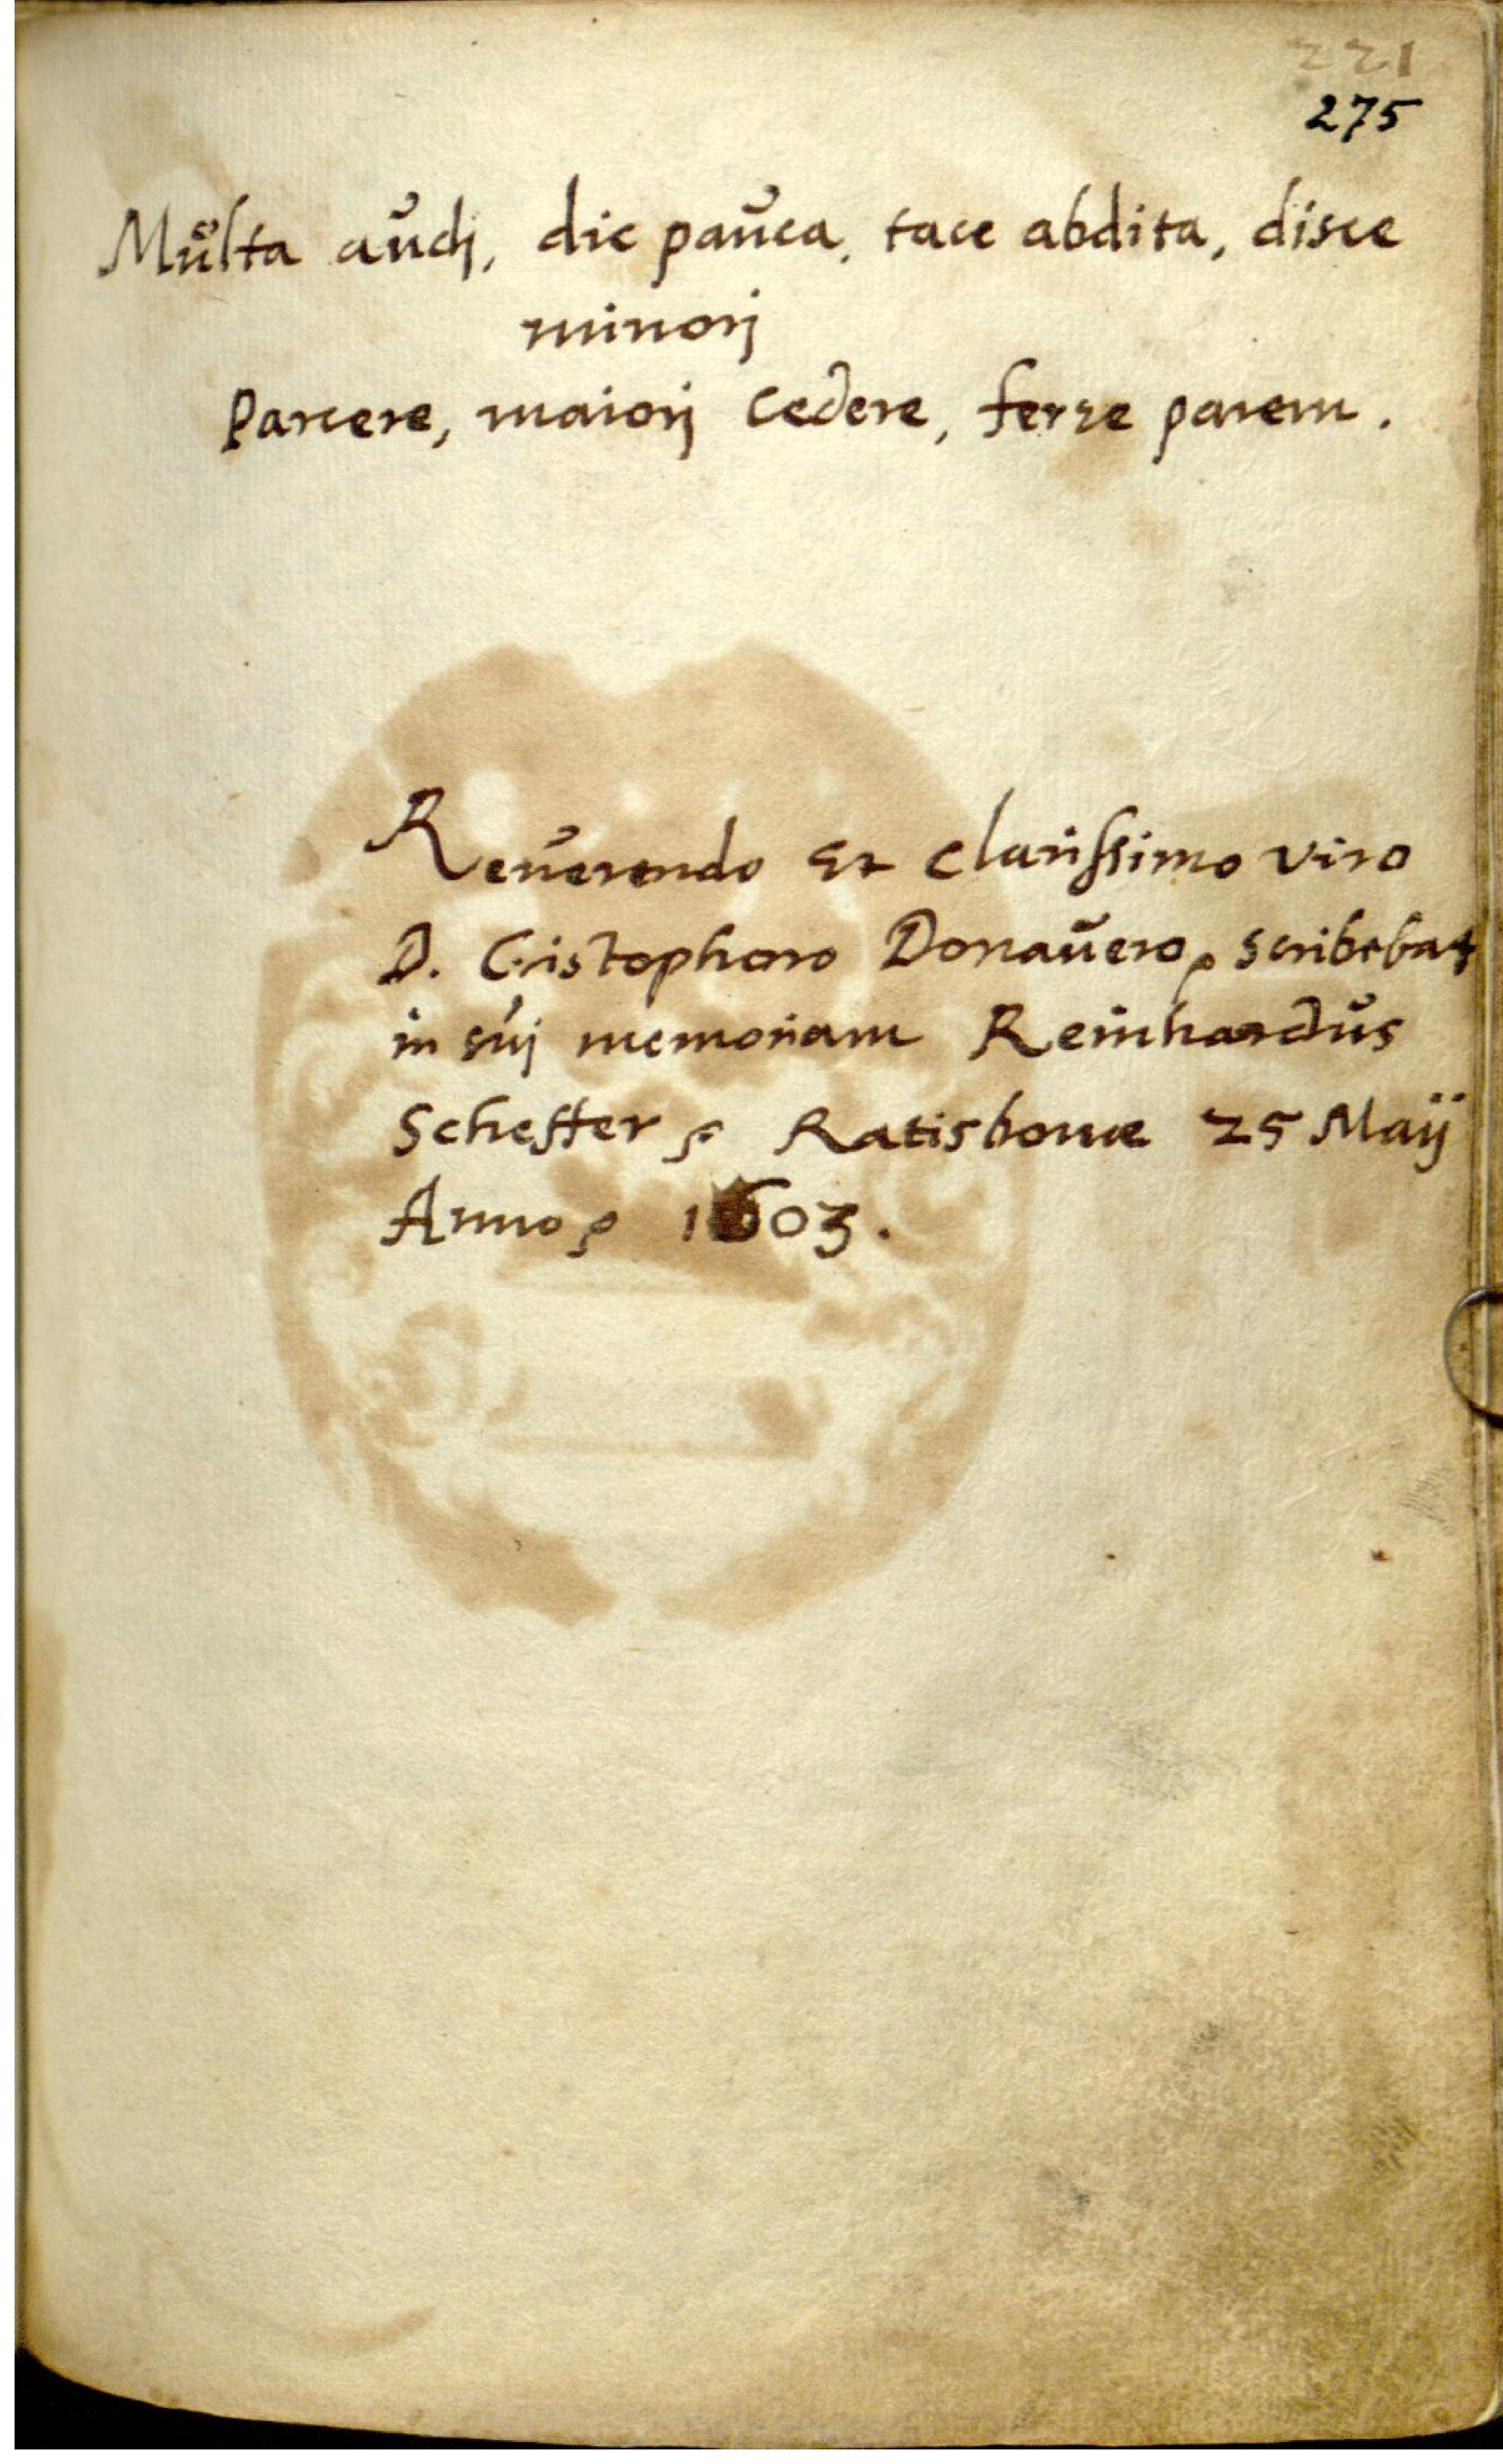 221
275
Multa audj, dic pauca, tace abdita, disce
minorj
Parcere, maiorj Cedere, ferre parem.
Reuerendo Et clarissimo viro
D. Cristophoro Donauero, scribebat
in suj memoriam Reinhardus
Scheffer, Ratisbonæ 25 Maij
Anno, 1603.